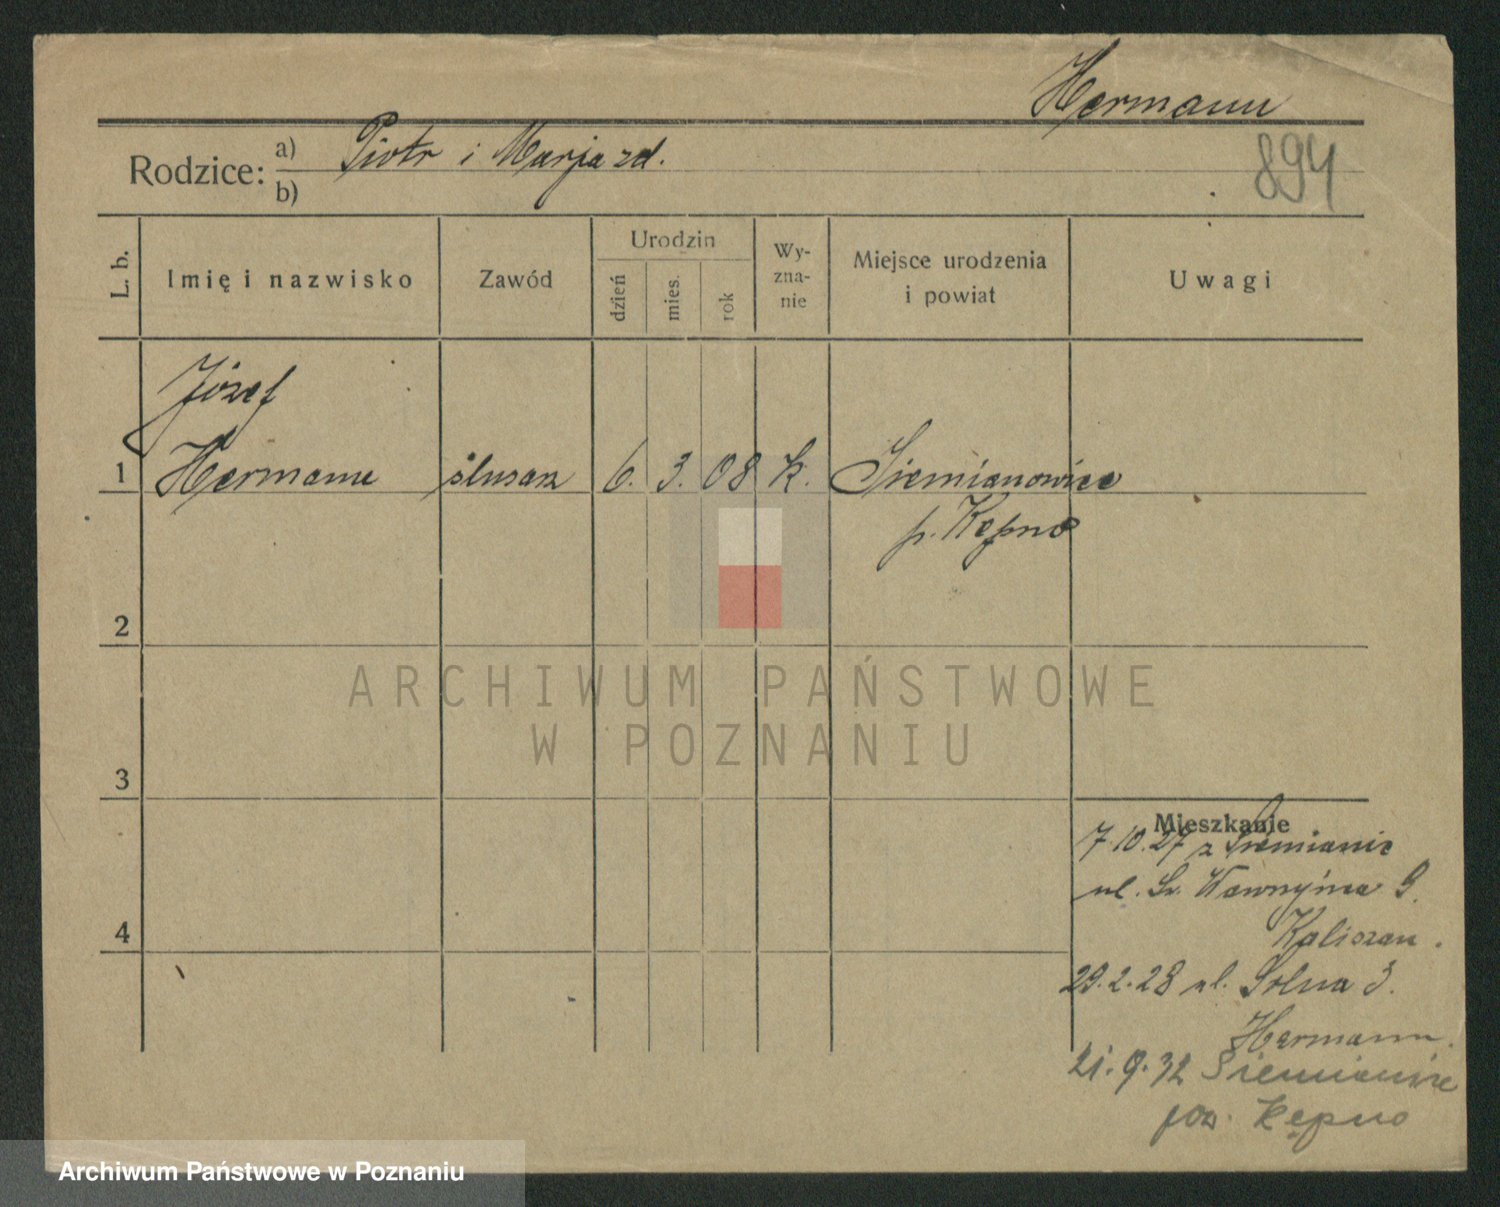 Hermann
894
Rodzice: a) Piotr i Marja zd.
b)
L. b.
Imię i nazwisko
Zawód
Urodzin
dzień
mies.
rok
Wy-
zna-
nie
Miejsce urodzenia
i powiat
Uwagi
Józef
1 Hermann ślusarz 6. 3. 08 k. Siemianowice
p. Kępno
2
3
4
Mieszkanie
7.10.27 z Siemianic
ul. Św. Wawrzyńca 9.
Kaliszan.
29.2.28 ul. Solna 3.
Hermann.
21.9.32 Siemianice
pow. Kępno
ARCHIWUM PAŃSTWOWE
W POZNANIU
Archiwum Państwowe w Poznaniu